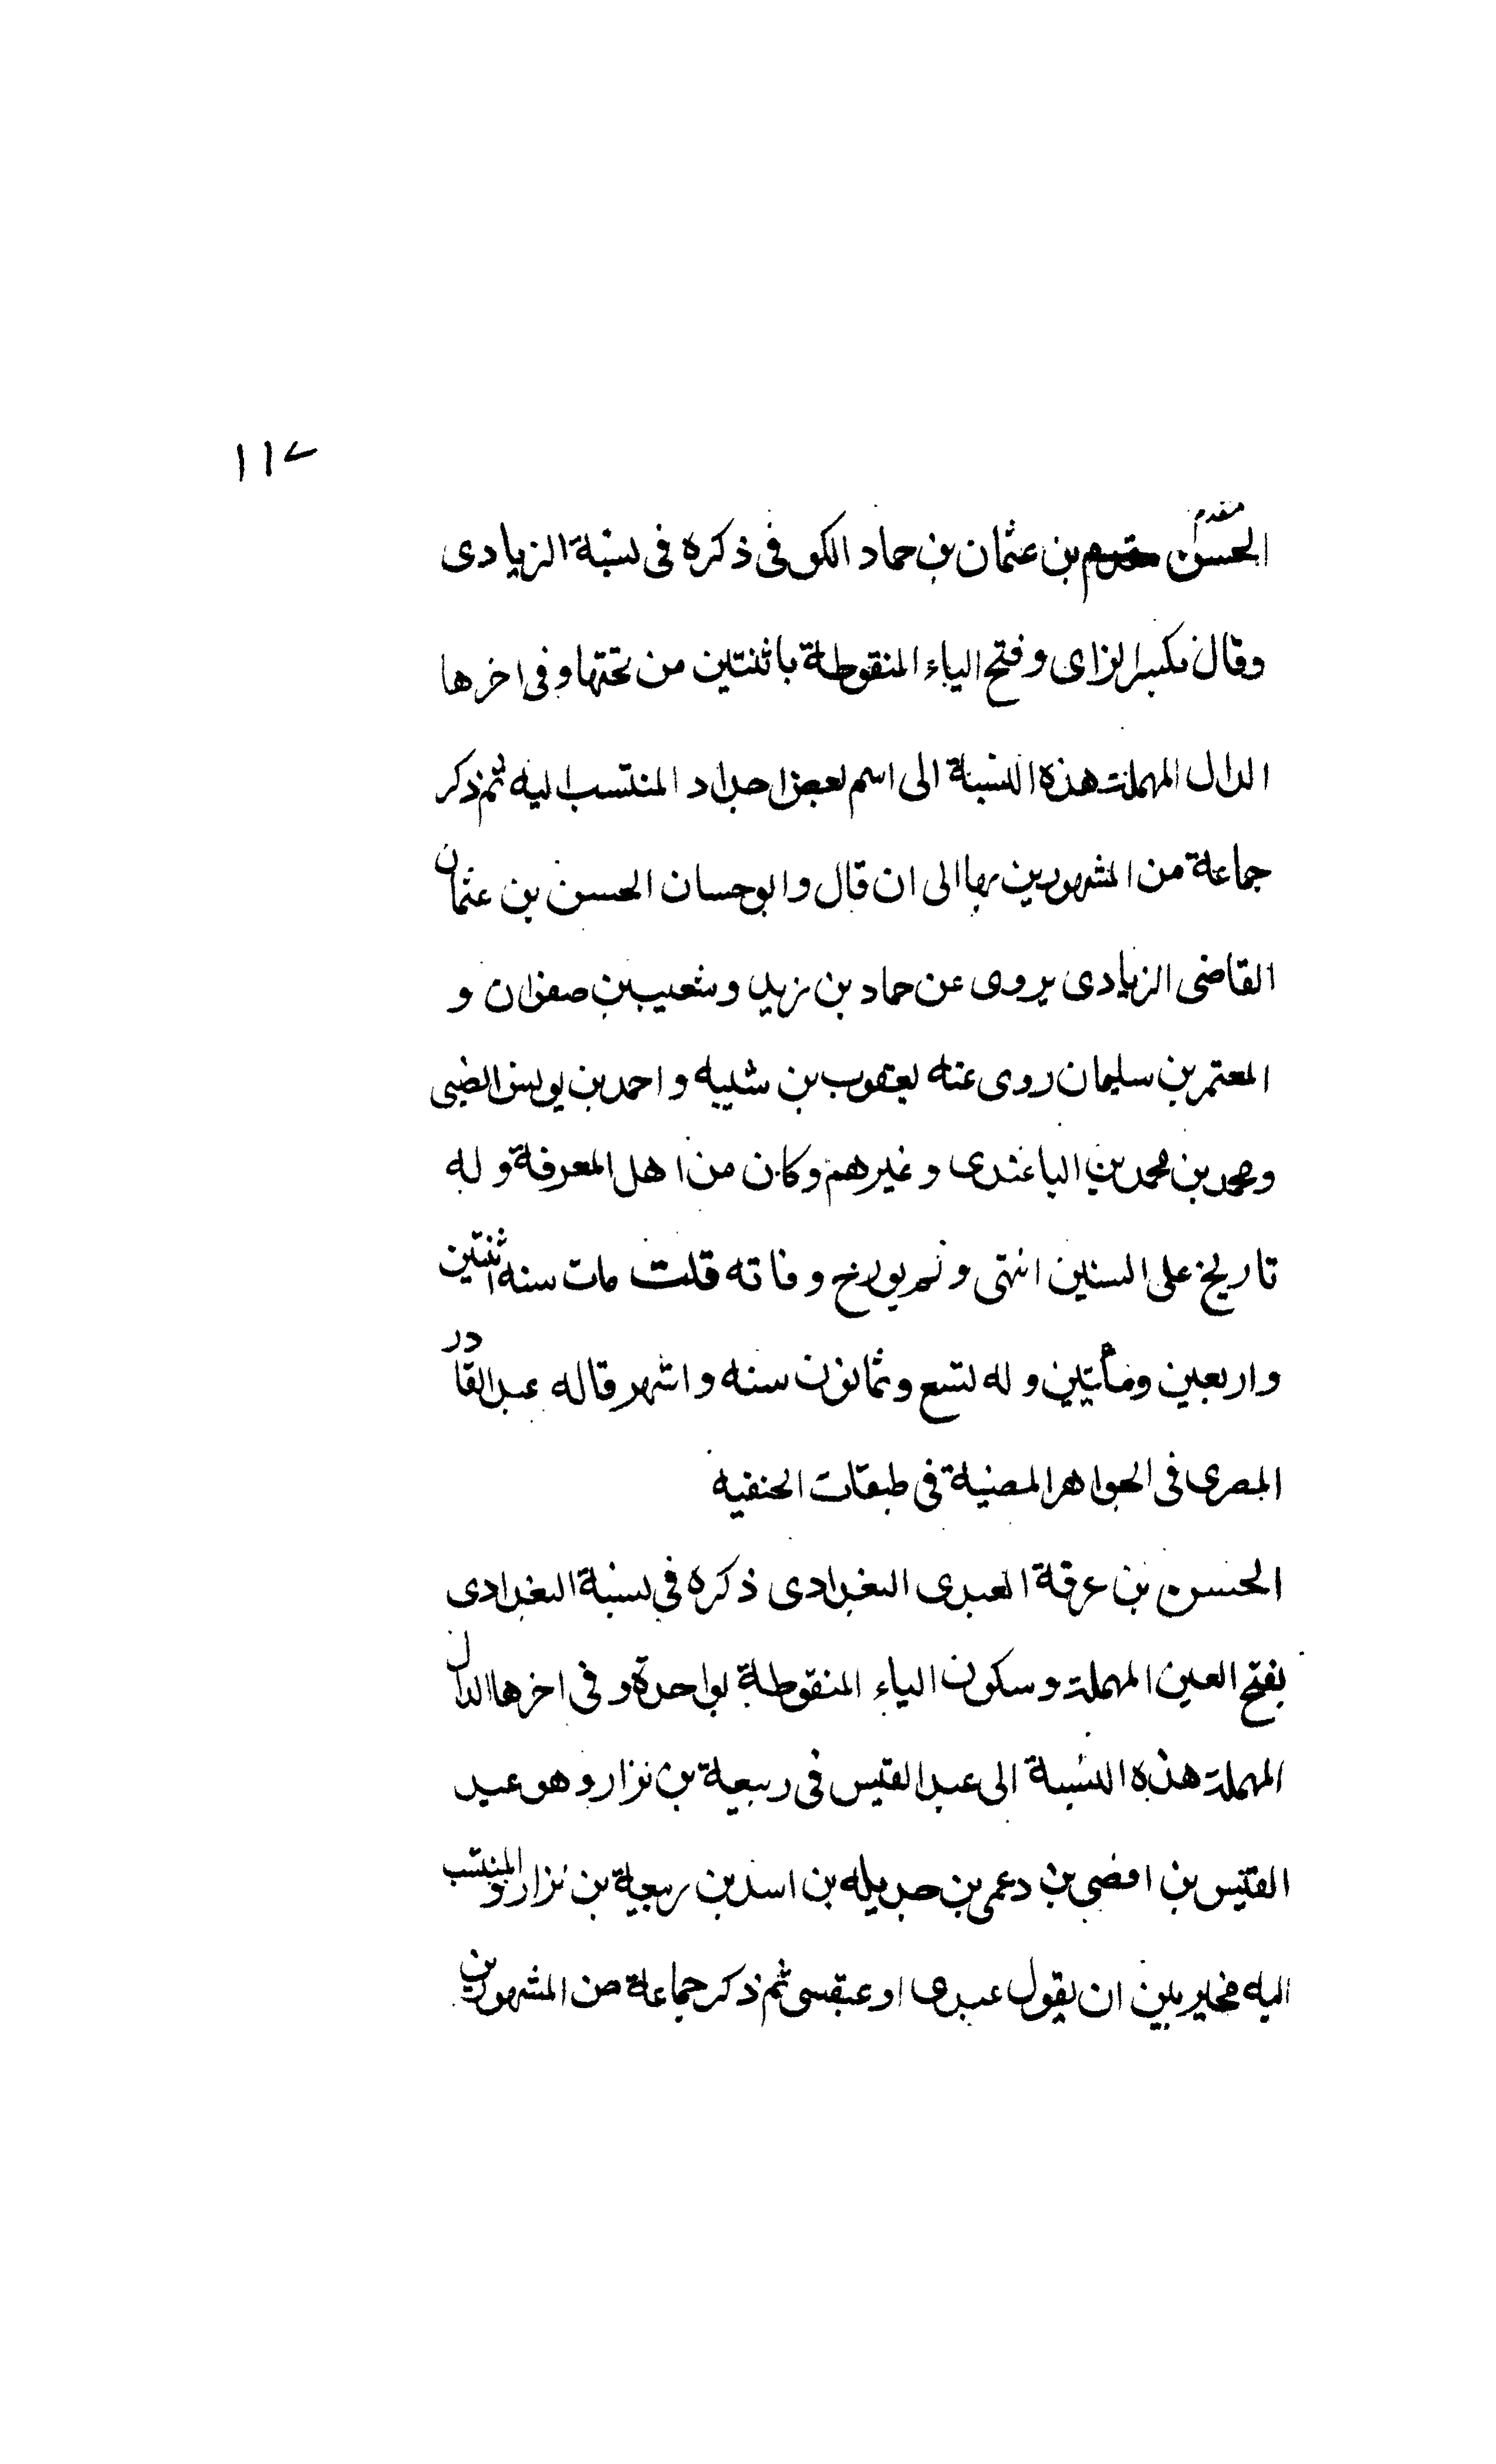 ١١٧
مقدم
الحسن بن عثمان بن حماد الكوفى ذكره فى نسبة الزيادى
وقال بكسر الزاى وفتح الياء المنقوطة باثنتين من تحتها وفى اخرها
الدال المهملة هذه النسبة الى اسم لبعض اجداد المنتسب اليه ثم ذكر
جماعة من المشهورين بها الى ان قال وابو حسان الحسن بن عثمان
القاضى الزيادى يروى عن حماد بن زيد وشعيب بن صفوان و
المعتمر بن سليمان روى عنه يعقوب بن شيبه واحمد بن يونس الضبى
ومحمد بن محمد بن الباغندى وغيرهم وكان من اهل المعرفة وله
تاريخ على السنين انتهى ولم يورخ وفاته قلت مات سنه اثنتين
واربعين ومأتين وله تسع وثمانون سنه واشهر قاله عبد القادر
المصرى فى الجواهر المضية فى طبقات الحنفيه
الحسن بن عرفة العبدى البغدادى ذكره فى نسبة البغدادى
بفتح العين المهملة وسكون الباء المنقوطة بواحدة وفى اخرها الدال
المهملة هذه النسبة الى عبد القيس فى ربيعة بن نزار وهو عبد
القيس بن افصى بن دعمى بن جديله بن اسد بن ربيعة بن نزار والمنتسب
اليه مخير بين ان يقول عبدى او عبقسى ثم ذكر جماعة من المشهورين